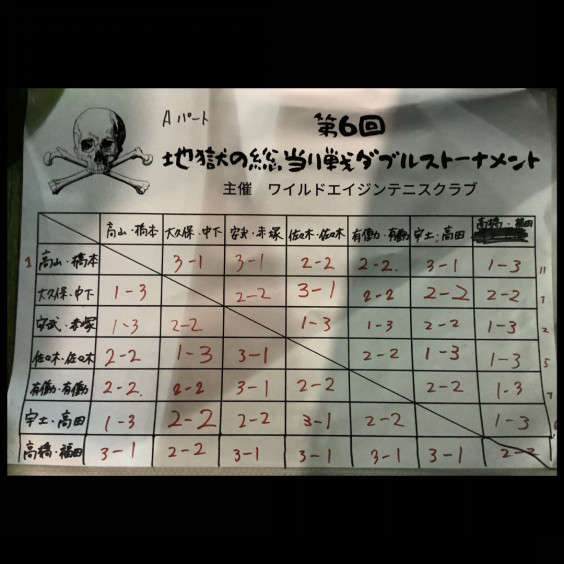 Aパート
第6回
地獄の総当り戦ダブルストーナメント
主催 ワイルドエイジンテニスクラブ
高山・橋本 大久保・中下 安武・赤塚 佐々木・佐々木 有働・有働 宇土・高田 高橋・福田
1 高山・橋本 3-1 3-1 2-2 2-2. 3-1 1-3 11
大久保・中下 1-3 2-2 3-1 2-2 2-2 2-2 7
安武・赤塚 1-3 2-2 1-3 1-3 2-2 1-3 2
佐々木・佐々木 2-2 1-3 3-1 2-2 1-3 1-3 5
有働・有働 2-2. 2-2 3-1 2-2 2-2 1-3 7
宇土・高田 1-3 2-2 2-2 3-1 2-2 1-3
高橋・福田 3-1 2-2 3-1 3-1 3-1 3-1 2-2